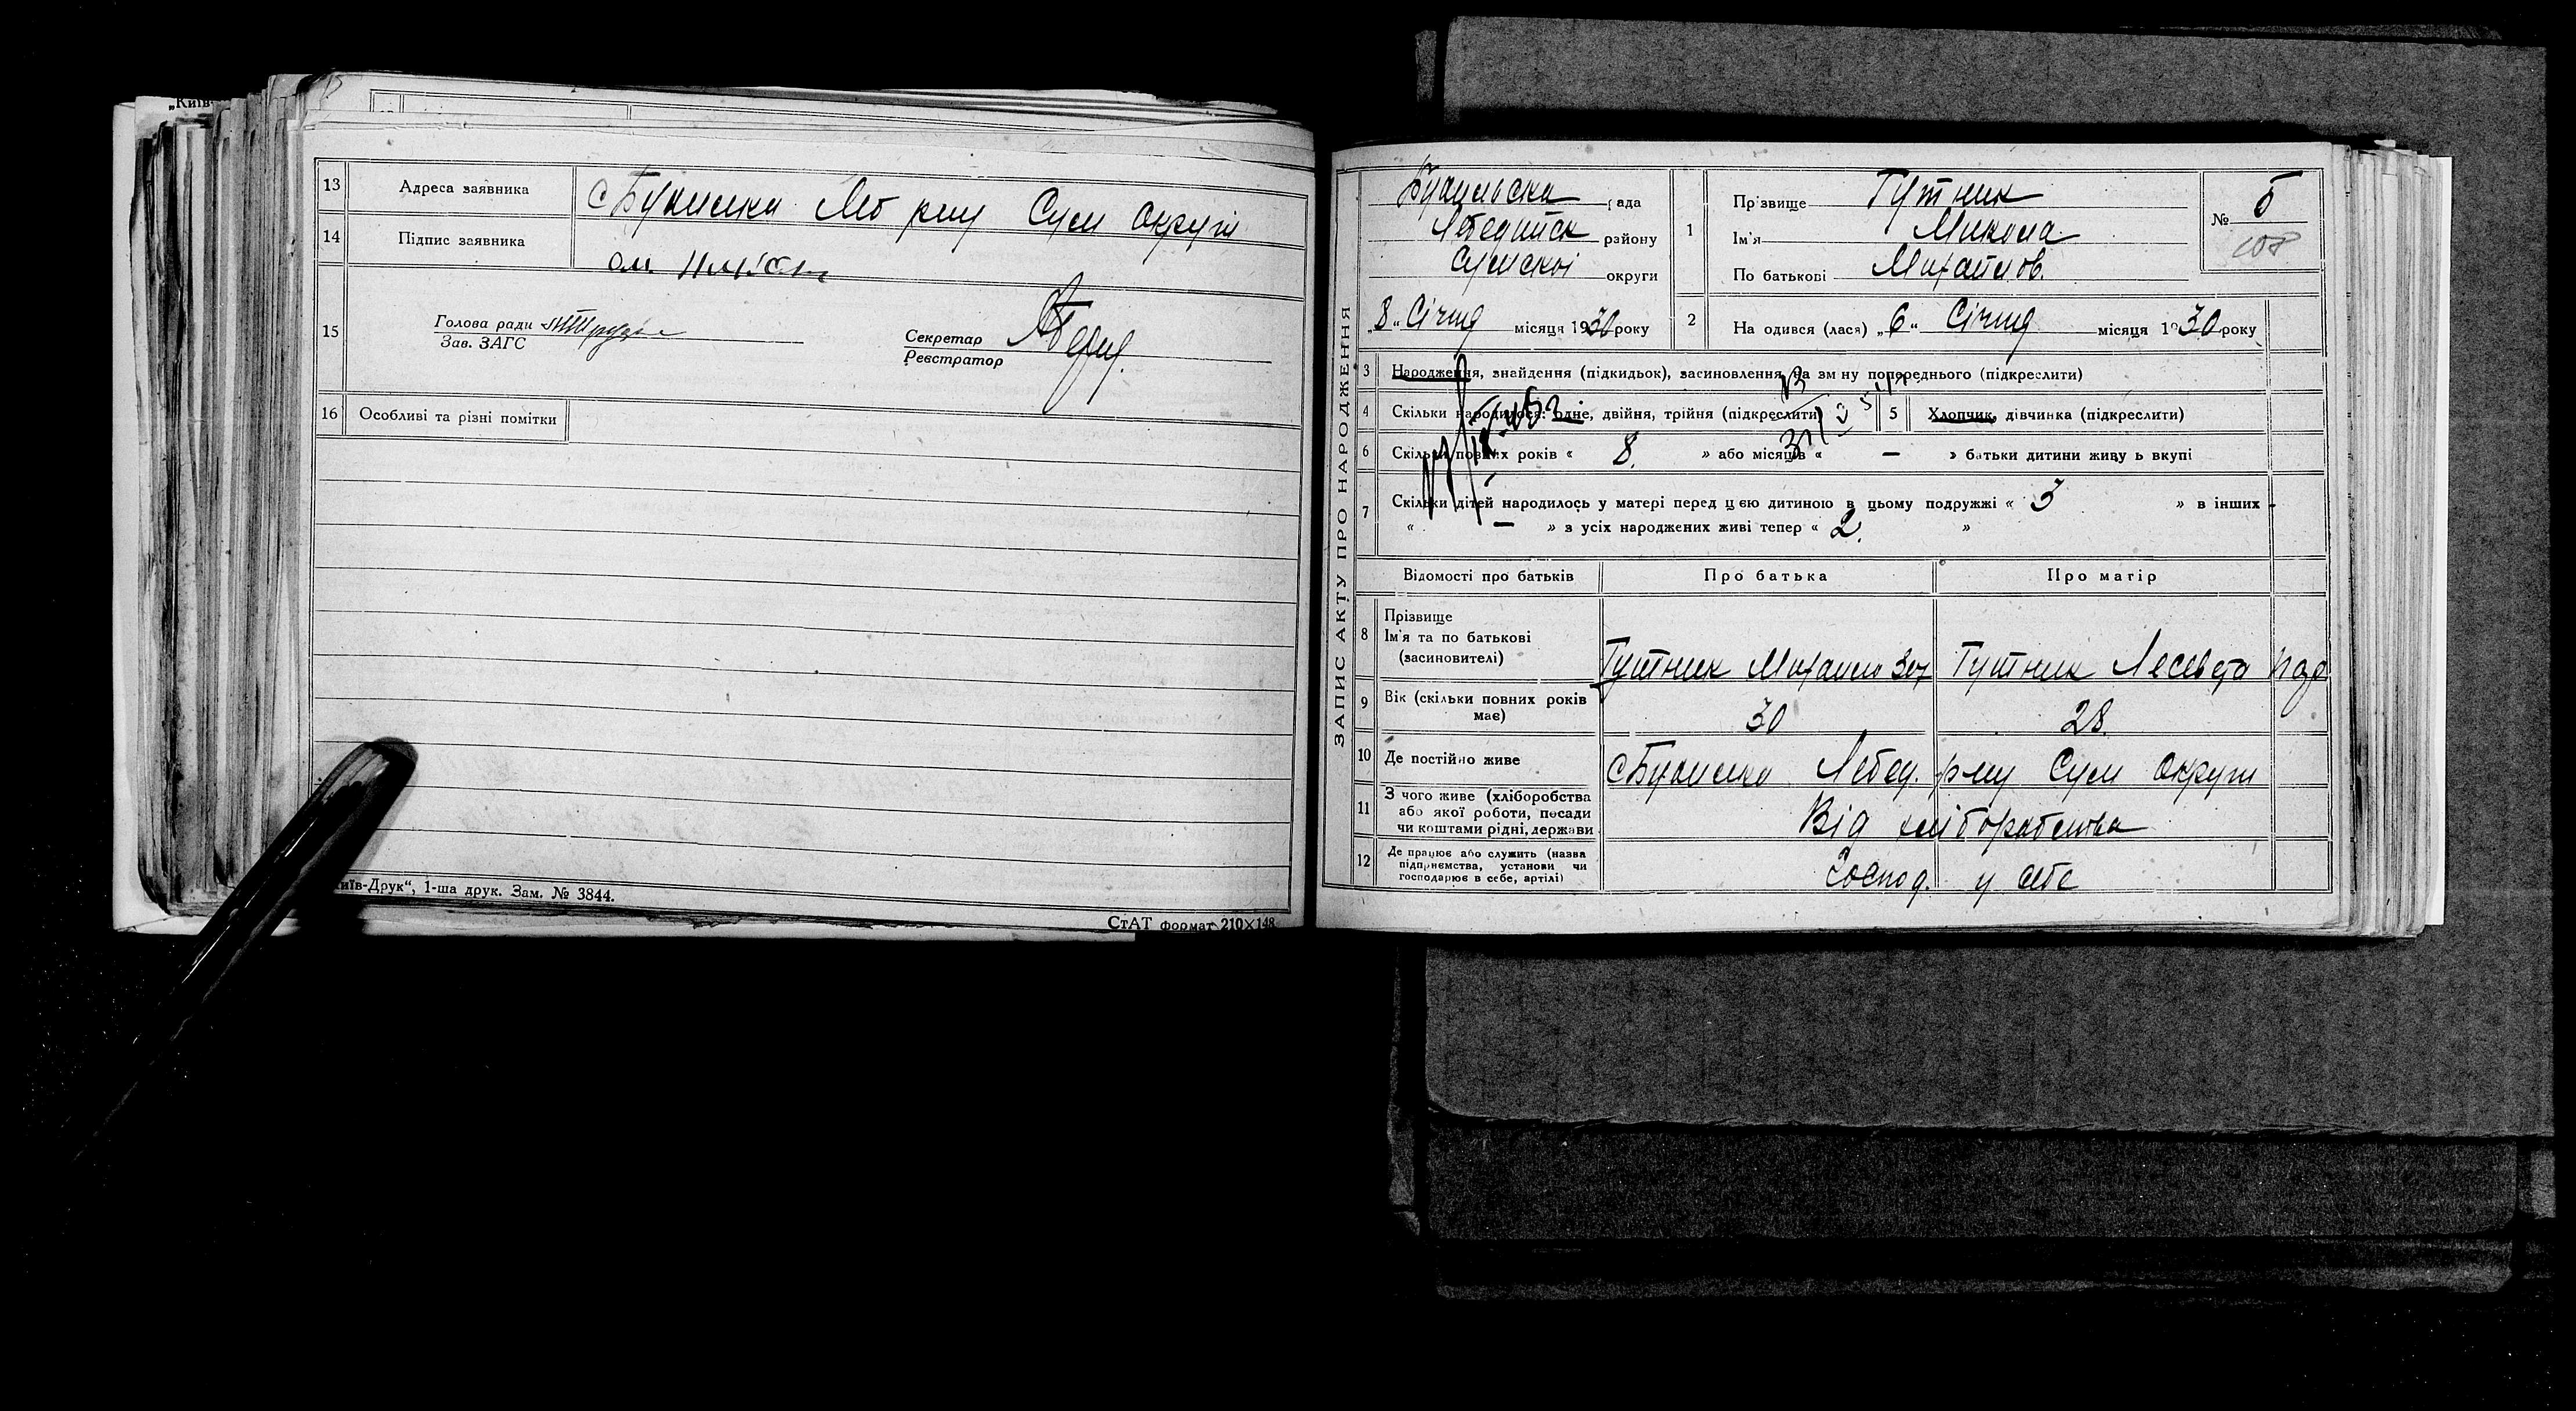 „Київ-
13 Адреса заявника с Будилка Леб р-ну Сум округи
14 Підпис заявника
15 Голова ради
Зав. ЗАГС
Секретар
Реєстратор
16 Особливі та різні помітки
иїв-Друк“, 1-ша друк. Зам. № 3844.
СтАТ формат 210×148
ЗАПИС АКТУ ПРО НАРОДЖЕННЯ
Будильська рада
Лебединск району
Сумскої округи
„8“ Січня місяця 1930 року
1 Прізвище Гутник
Ім'я Микола
По батькові Михайлов.
№ 5
108
2 На одився (лася) „6“ Січня місяця 1930 року
3 Народження, знайдення (підкидьок), засиновлення, на зм ну попереднього (підкреслити)
4 Скільки народилося: одне, двійня, трійня (підкреслити)
5 Хлопчик, дівчинка (підкреслити)
6 Скільки повних років « 8. » або місяців « — » батьки дитини живу ь вкупі
7 Скільки дітей народилось у матері перед цією дитиною в цьому подружжі « 3 » в інших -
« — » з усіх народжених живі тепер « 2. »
Відомості про батьків Про батька Про матір
8 Прізвище
Ім'я та по батькові
(засновителі)
Гутник Михайло Гутник Лесевета
9 Вік (скільки повних років
має)
30 28.
10 Де постійно живе с Будилка Лебед. р-ну Сум округи
11 З чого живе (хліборобства
або якої роботи, посади
чи коштами рідні, держави
Від хліборобства
12 Де працює або служить (назва
підприємства, установи чи
господарює в себе, артілі)
Господ. у себе